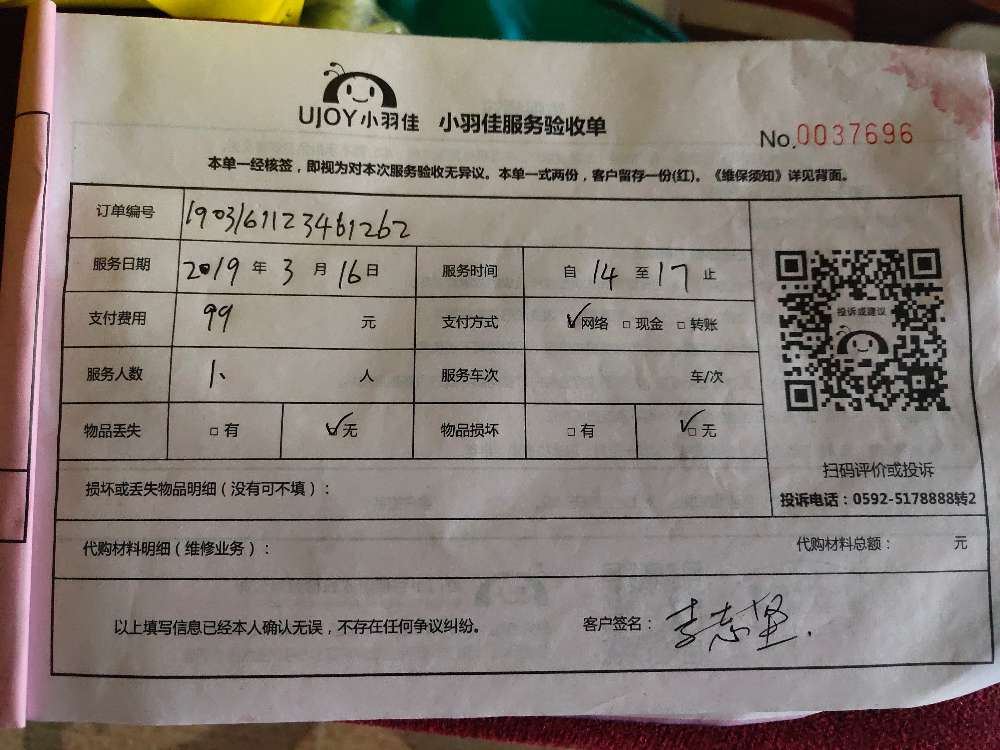 UJOY小羽佳 小羽佳服务验收单
No.0037696
本单一经核签，即视为对本次服务验收无异议。本单一式两份，客户留存一份(红)。《维保须知》详见背面。
订单编号 1903161123461262
服务日期 2019 年 3 月 16 日 服务时间 自 14 至 17 止
支付费用 99 元 支付方式 ☑网络 □现金 □转账
投诉或建议
服务人数 1、 人 服务车次 车/次
物品丢失 □有 ☑无 物品损坏 □有 ☑无
扫码评价或投诉
损坏或丢失物品明细（没有可不填）：
投诉电话：0592-5178888转2
代购材料明细（维修业务）： 代购材料总额： 元
以上填写信息已经本人确认无误，不存在任何争议纠纷。 客户签名：李志坚.